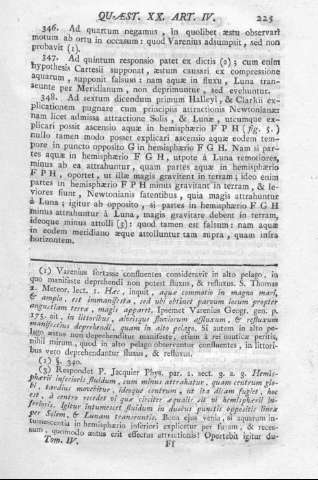 QUÆST. XX. ART. IV. 225
346. Ad quartum negamus, in quolibet æstu observari
motum ab ortu in occasum: quod Varenius adsumpsit, sed non
probavit (1).
347. Ad quintum responsio patet ex dictis (2); cum enim
hypothesis Cartesii supponat, æstum causari ex compressione
aquarum, supponit falsum: nam aquæ in fluxu, Luna tran-
seunte per Meridianum, non deprimuntur, sed evehuntur.
348. Ad sextum dicendum primum Halleyi, & Clarkii ex-
plicationem pugnare cum principiis attractionis Newtonianæ:
nam licet admissa attractione Solis, & Lunæ, utcumque ex-
plicari possit ascensio aquæ in hemisphærio F P H (fig. 5.)
nullo tamen modo posset explicari ascensio aquæ eodem tem-
pore in puncto opposito G in hemisphærio F G H. Nam si par-
tes aquæ in hemisphærio F G H, utpote à Luna remotiores,
minus ab ea attrahuntur, quam partes aquæ in hemisphærio
F P H, oportet, ut illæ magis gravitent in terram; ideo enim
partes in hemisphærio F P H minus gravitant in terram, & le-
viores fiunt, Newtonianis fatentibus, quia magis attrahuntur
à Luna; igitur ab opposito, si partes in hemisphærio F G H
minus attrahuntur à Luna, magis gravitare debent in terram,
ideoque minus attolli (3): quod tamen est falsum: nam aquæ
in eodem meridiano æque attolluntur tam supra, quam infra
horizontem.
(1) Varenius fortasse confluentes consideravit in alto pelago, in
quo manifeste deprehendi non potest fluxus, & refluxus. S. Thomas
2. Meteor. lect. 1. Hæc, inquit, aquæ commotio in magno mari,
& amplo, est immanifesta, sed ubi obtinet parvum locum propter
angustiam terra, magis apparet. Ipsemet Varenius Geogr. gen. p.
175. ait, in littoribus, alveisque fluviorum affluxum, & refluxum
manifestius deprehendi, quam in alto pelago. Si autem in alto pe-
lago æstus non deprehenditur manifeste, etiam à rei nauticæ peritis,
nihil mirum, quod in alto pelago observentur confluentes, in littori-
bus vero deprehendantur fluxus, & refluxus.
(2) §. 340.
(3) Respondet P. Jacquier Phys. par. 2. sect. 9. a. 9. Hemis-
phærii inferioris fluidum, cum minus attrahatur, quam centrum glo-
bi, tardius movebitur, ideoque centrum, ut ita dicam fugiet, hoc
est, à centro recedet vi quæ circiter æqualis sit vi hemisphærii in-
ferioris. Igitur intumescet fluidum in duobus punctis oppositis lineæ
per Solem, & Lunam transeuntis. Bona ejus venia, si aquarum in-
tumescentia in hemisphærio inferiori explicetur per fugam, & reces-
sum, quomodo æstus erit effectus attractionis? Oportebit igitur du-
Tom. IV. Ff